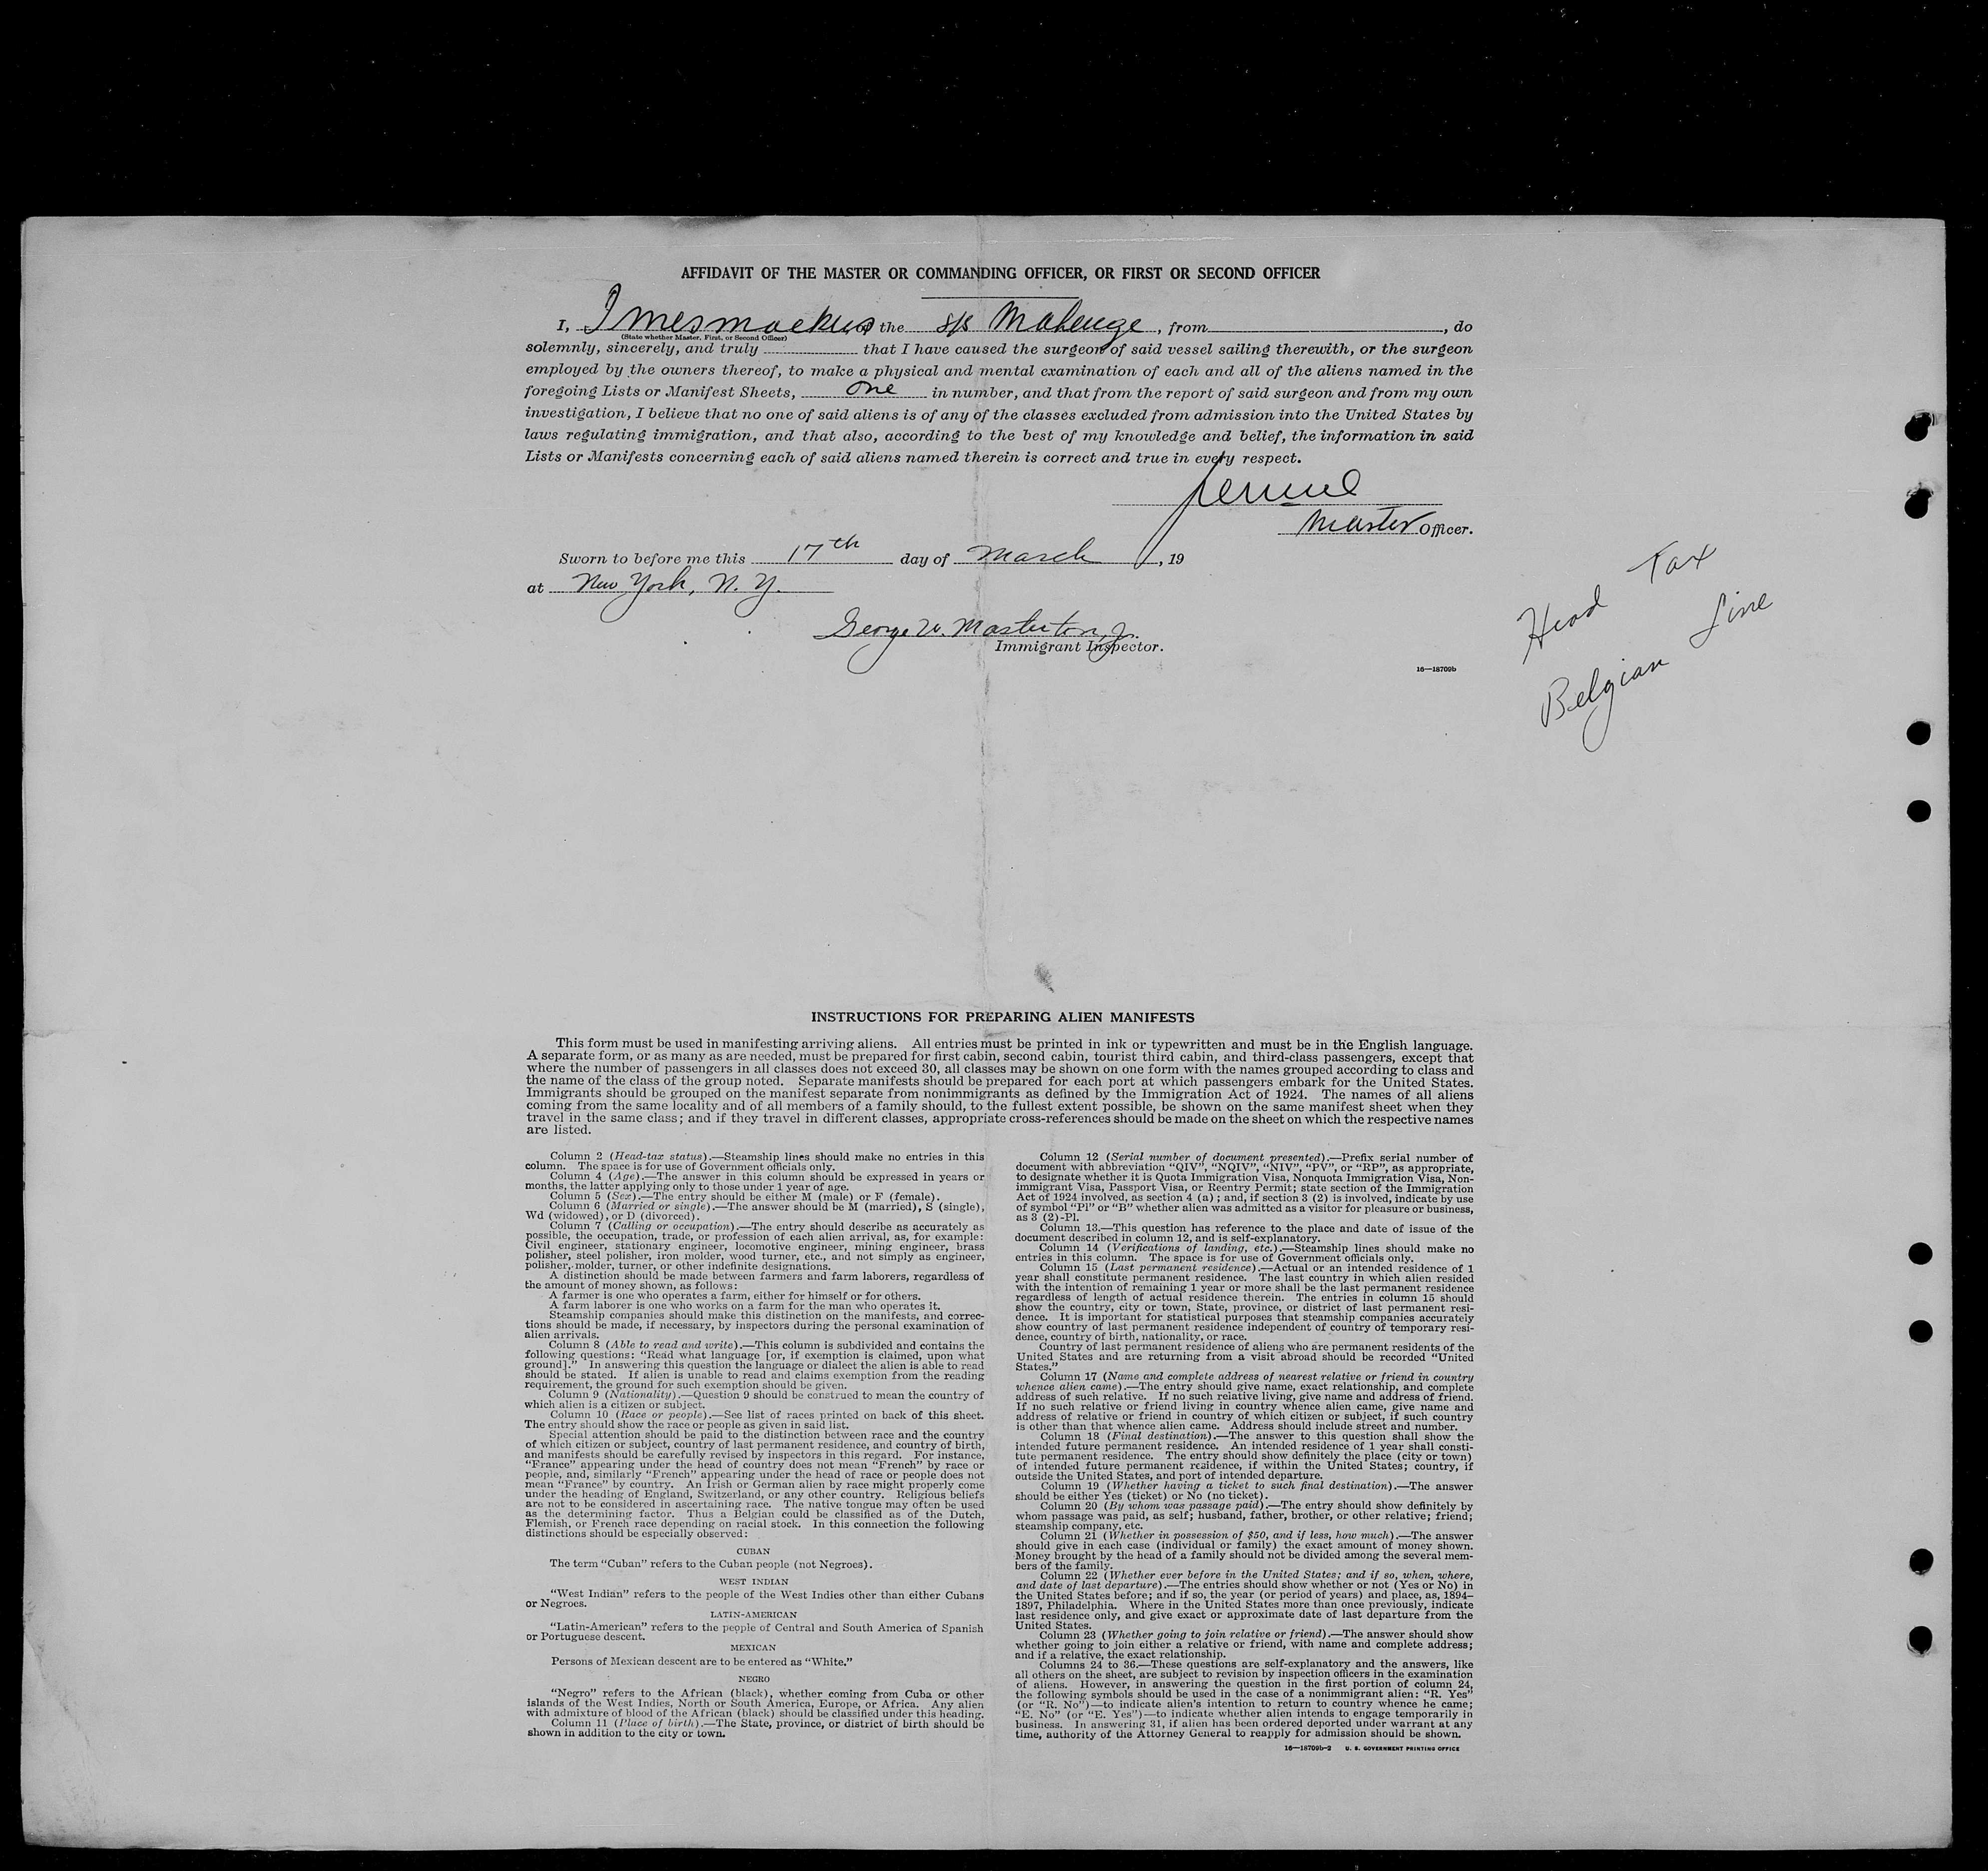 AFFIDAVIT OF THE MASTER OR COMMANDING OFFICER, OR FIRST OR SECOND OFFICER
I, of the s/s Mahenge, from , do
(State whether Master, First, or Second Officer)
solemnly, sincerely, and truly that I have caused the surgeon of said vessel sailing therewith, or the surgeon
employed by the owners thereof, to make a physical and mental examination of each and all of the aliens named in the
foregoing Lists or Manifest Sheets, one in number, and that from the report of said surgeon and from my own
investigation, I believe that no one of said aliens is of any of the classes excluded from admission into the United States by
laws regulating immigration, and that also, according to the best of my knowledge and belief, the information in said
Lists or Manifests concerning each of said aliens named therein is correct and true in every respect.
Master Officer.
Sworn to before me this 17th day of March, 19
at New York, N. Y.
George W. Masterton, Jr.
Immigrant Inspector.
16—18709b
Head Tax
Belgian Line
INSTRUCTIONS FOR PREPARING ALIEN MANIFESTS
This form must be used in manifesting arriving aliens. All entries must be printed in ink or typewritten and must be in the English language.
A separate form, or as many as are needed, must be prepared for first cabin, second cabin, tourist third cabin, and third-class passengers, except that
where the number of passengers in all classes does not exceed 30, all classes may be shown on one form with the names grouped according to class and
the name of the class of the group noted. Separate manifests should be prepared for each port at which passengers embark for the United States.
Immigrants should be grouped on the manifest separate from nonimmigrants as defined by the Immigration Act of 1924. The names of all aliens
coming from the same locality and of all members of a family should, to the fullest extent possible, be shown on the same manifest sheet when they
travel in the same class; and if they travel in different classes, appropriate cross-references should be made on the sheet on which the respective names
are listed.
Column 2 (Head-tax status).—Steamship lines should make no entries in this
column. The space is for use of Government officials only.
Column 4 (Age).—The answer in this column should be expressed in years or
months, the latter applying only to those under 1 year of age.
Column 5 (Sex).—The entry should be either M (male) or F (female).
Column 6 (Married or single).—The answer should be M (married), S (single),
Wd (widowed), or D (divorced).
Column 7 (Calling or occupation).—The entry should describe as accurately as
possible, the occupation, trade, or profession of each alien arrival, as, for example:
Civil engineer, stationary engineer, locomotive engineer, mining engineer, brass
polisher, steel polisher, iron molder, wood turner, etc., and not simply as engineer,
polisher, molder, turner, or other indefinite designations.
A distinction should be made between farmers and farm laborers, regardless of
the amount of money shown, as follows:
A farmer is one who operates a farm, either for himself or for others.
A farm laborer is one who works on a farm for the man who operates it.
Steamship companies should make this distinction on the manifests, and correc-
tions should be made, if necessary, by inspectors during the personal examination of
alien arrivals.
Column 8 (Able to read and write).—This column is subdivided and contains the
following questions: "Read what language [or, if exemption is claimed, upon what
ground]." In answering this question the language or dialect the alien is able to read
should be stated. If alien is unable to read and claims exemption from the reading
requirement, the ground for such exemption should be given.
Column 9 (Nationality).—Question 9 should be construed to mean the country of
which alien is a citizen or subject.
Column 10 (Race or people).—See list of races printed on back of this sheet.
The entry should show the race or people as given in said list.
Special attention should be paid to the distinction between race and the country
of which citizen or subject, country of last permanent residence, and country of birth,
and manifests should be carefully revised by inspectors in this regard. For instance,
"France" appearing under the head of country does not mean "French" by race or
people, and, similarly "French" appearing under the head of race or people does not
mean "France" by country. An Irish or German alien by race might properly come
under the heading of England, Switzerland, or any other country. Religious beliefs
are not to be considered in ascertaining race. The native tongue may often be used
as the determining factor. Thus a Belgian could be classified as of the Dutch,
Flemish, or French race depending on racial stock. In this connection the following
distinctions should be especially observed:
CUBAN
The term "Cuban" refers to the Cuban people (not Negroes).
WEST INDIAN
"West Indian" refers to the people of the West Indies other than either Cubans
or Negroes.
LATIN-AMERICAN
"Latin-American" refers to the people of Central and South America of Spanish
or Portuguese descent.
MEXICAN
Persons of Mexican descent are to be entered as "White."
NEGRO
"Negro" refers to the African (black), whether coming from Cuba or other
islands of the West Indies, North or South America, Europe, or Africa. Any alien
with admixture of blood of the African (black) should be classified under this heading.
Column 11 (Place of birth).—The State, province, or district of birth should be
shown in addition to the city or town.
Column 12 (Serial number of document presented).—Prefix serial number of
document with abbreviation "QIV", "NQIV", "NIV", "PV", or "RP", as appropriate,
to designate whether it is Quota Immigration Visa, Nonquota Immigration Visa, Non-
immigrant Visa, Passport Visa, or Reentry Permit; state section of the Immigration
Act of 1924 involved, as section 4 (a); and, if section 3 (2) is involved, indicate by use
of symbol "Pl" or "B" whether alien was admitted as a visitor for pleasure or business,
as 3 (2)-Pl.
Column 13.—This question has reference to the place and date of issue of the
document described in column 12, and is self-explanatory.
Column 14 (Verifications of landing, etc.).—Steamship lines should make no
entries in this column. The space is for use of Government officials only.
Column 15 (Last permanent residence).—Actual or an intended residence of 1
year shall constitute permanent residence. The last country in which alien resided
with the intention of remaining 1 year or more shall be the last permanent residence
regardless of length of actual residence therein. The entries in column 15 should
show the country, city or town, State, province, or district of last permanent resi-
dence. It is important for statistical purposes that steamship companies accurately
show country of last permanent residence independent of country of temporary resi-
dence, country of birth, nationality, or race.
Country of last permanent residence of aliens who are permanent residents of the
United States and are returning from a visit abroad should be recorded "United
States."
Column 17 (Name and complete address of nearest relative or friend in country
whence alien came).—The entry should give name, exact relationship, and complete
address of such relative. If no such relative living, give name and address of friend.
If no such relative or friend living in country whence alien came, give name and
address of relative or friend in country of which citizen or subject, if such country
is other than that whence alien came. Address should include street and number.
Column 18 (Final destination).—The answer to this question shall show the
intended future permanent residence. An intended residence of 1 year shall consti-
tute permanent residence. The entry should show definitely the place (city or town)
of intended future permanent residence, if within the United States; country, if
outside the United States, and port of intended departure.
Column 19 (Whether having a ticket to such final destination).—The answer
should be either Yes (ticket) or No (no ticket).
Column 20 (By whom was passage paid).—The entry should show definitely by
whom passage was paid, as self; husband, father, brother, or other relative; friend;
steamship company, etc.
Column 21 (Whether in possession of $50, and if less, how much).—The answer
should give in each case (individual or family) the exact amount of money shown.
Money brought by the head of a family should not be divided among the several mem-
bers of the family.
Column 22 (Whether ever before in the United States; and if so, when, where,
and date of last departure).—The entries should show whether or not (Yes or No) in
the United States before; and if so, the year (or period of years) and place, as, 1894–
1897, Philadelphia. Where in the United States more than once previously, indicate
last residence only, and give exact or approximate date of last departure from the
United States.
Column 23 (Whether going to join relative or friend).—The answer should show
whether going to join either a relative or friend, with name and complete address;
and if a relative, the exact relationship.
Columns 24 to 36.—These questions are self-explanatory and the answers, like
all others on the sheet, are subject to revision by inspection officers in the examination
of aliens. However, in answering the question in the first portion of column 24,
the following symbols should be used in the case of a nonimmigrant alien: "R. Yes"
(or "R. No")—to indicate alien's intention to return to country whence he came;
"E. No" (or "E. Yes")—to indicate whether alien intends to engage temporarily in
business. In answering 31, if alien has been ordered deported under warrant at any
time, authority of the Attorney General to reapply for admission should be shown.
16—18709b-2 U. S. GOVERNMENT PRINTING OFFICE